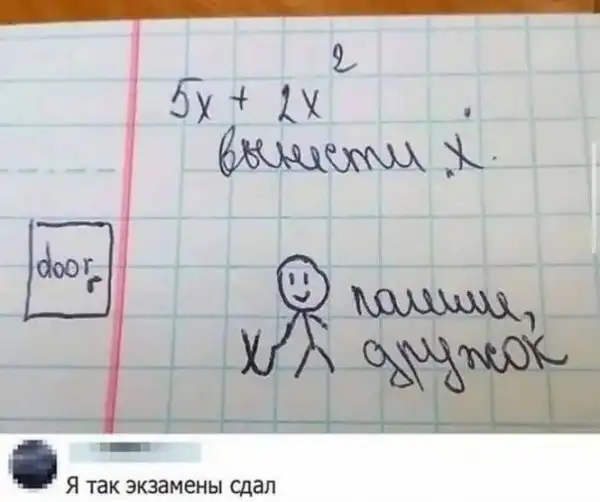 5x + 2x²
вынести x.
door
пошли,
x дружок
Я так экзамены сдал